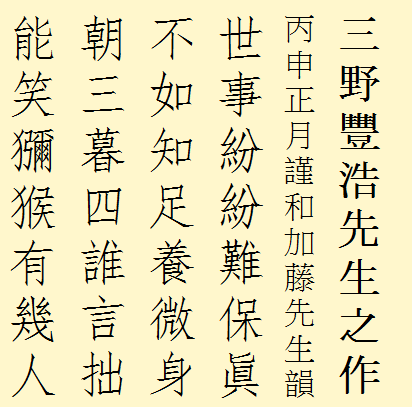 三野豐浩先生之作
丙申正月謹和加藤先生韻
世事紛紛難保眞
不如知足養微身
朝三暮四誰言拙
能笑獼猴有幾人